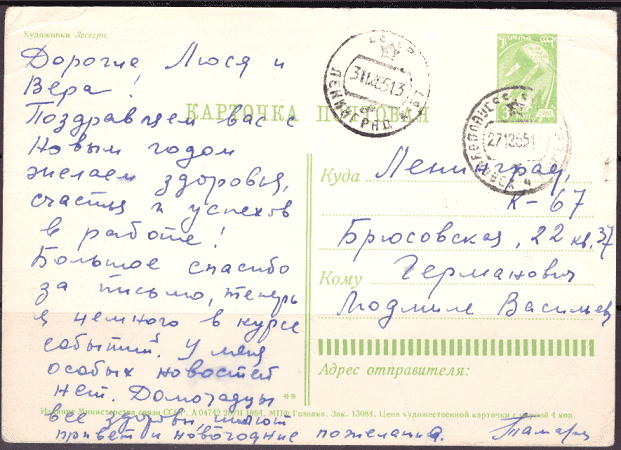 Художники Лесегри.
Дорогие Люся и
Вера!
Поздравляем вас с
Новым годом
желаем здоровья,
счастья и успехов
в работе!
Большое спасибо
за письмо, теперь
я немного в курсе
событий. У меня
особых новостей
нет. Домочадцы
все здоровы, шлют
привет и новогодние пожелания. Тамара
КАРТОЧКА ПОЧТОВАЯ
ПОЧТА СССР
1961
ЛЕНИНГРАД
311265
271265
Куда Ленинград,
К-67
Брюсовская, 22 кв. 37
Кому Германович
Людмиле Васильев
Адрес отправителя:
**
Издание Министерства связи СССР. А 04742 26/II 1964. МПФ Гознака. Зак. 13084. Цена художественной карточки с маркой 4 коп.